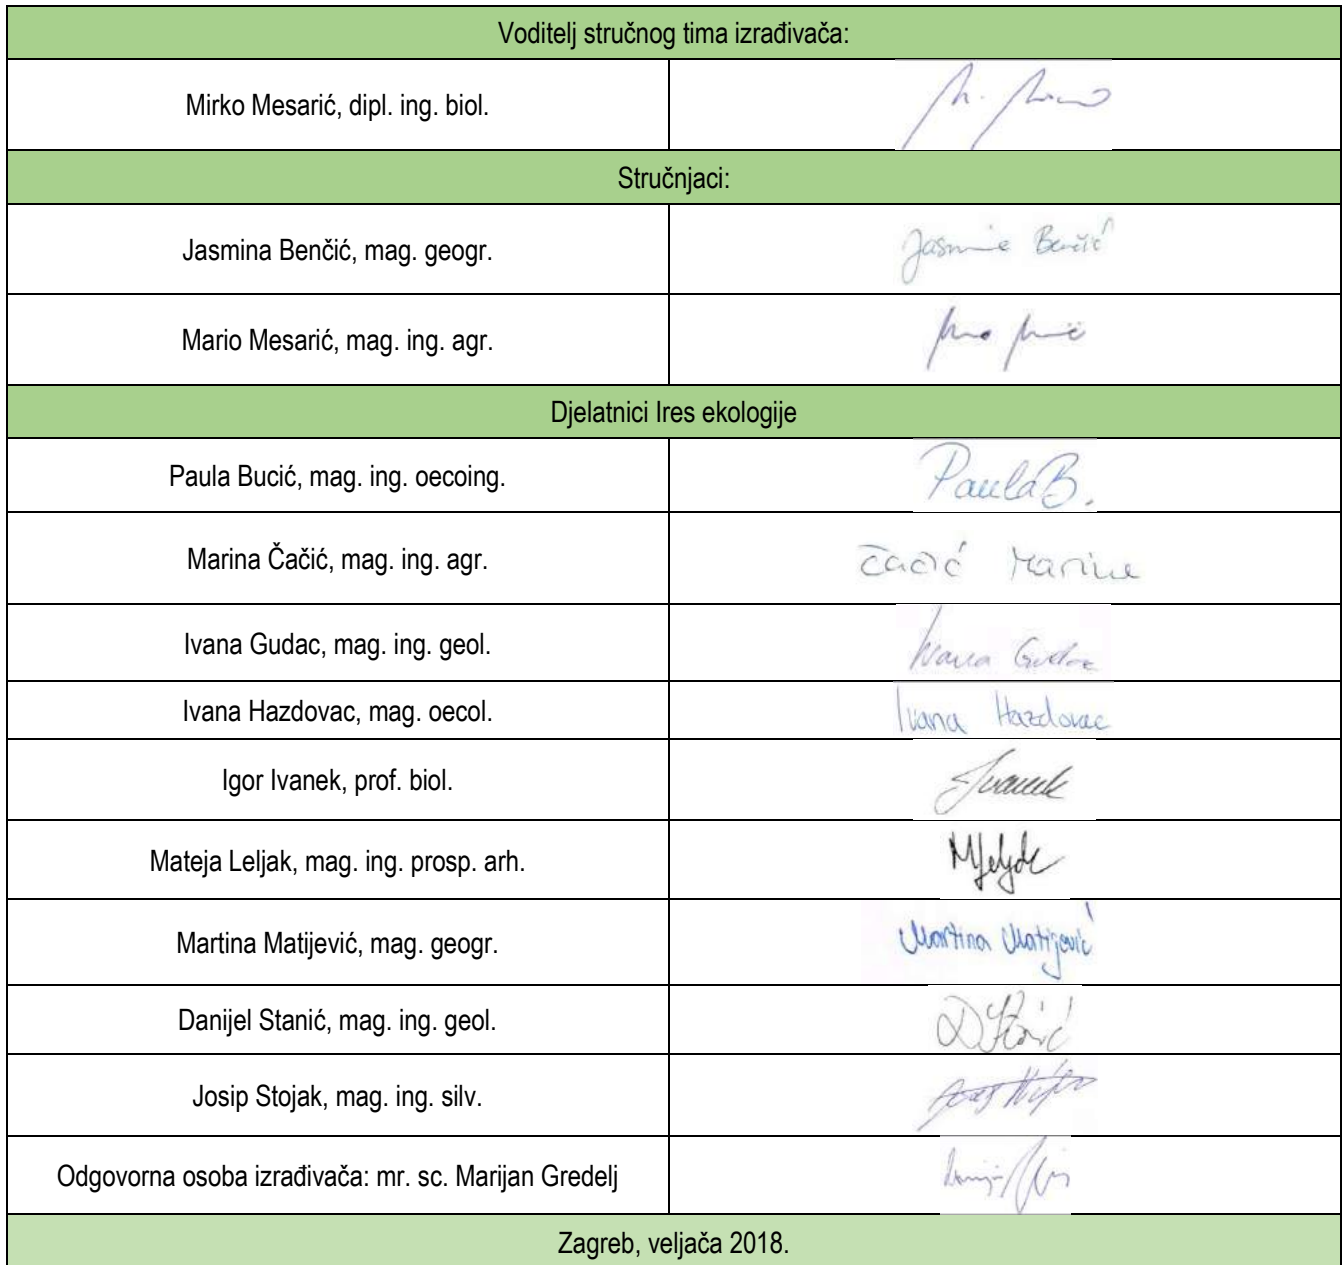 Voditelj stručnog tima izrađivača:
Mirko Mesarić, dipl. ing. biol.
Stručnjaci:
Jasmina Benčić, mag. geogr.
Jasmina Benčić
Mario Mesarić, mag. ing. agr.
Djelatnici Ires ekologije
Paula Bucić, mag. ing. oecoing.
Paula B.
Marina Čačić, mag. ing. agr.
Čačić Marina
Ivana Gudac, mag. ing. geol.
Ivana Gudac
Ivana Hazdovac, mag. oecol.
Ivana Hazdovac
Igor Ivanek, prof. biol.
Ivanek
Mateja Leljak, mag. ing. prosp. arh.
MLeljak
Martina Matijević, mag. geogr.
Martina Matijević
Danijel Stanić, mag. ing. geol.
DStanić
Josip Stojak, mag. ing. silv.
Odgovorna osoba izrađivača: mr. sc. Marijan Gredelj
Zagreb, veljača 2018.